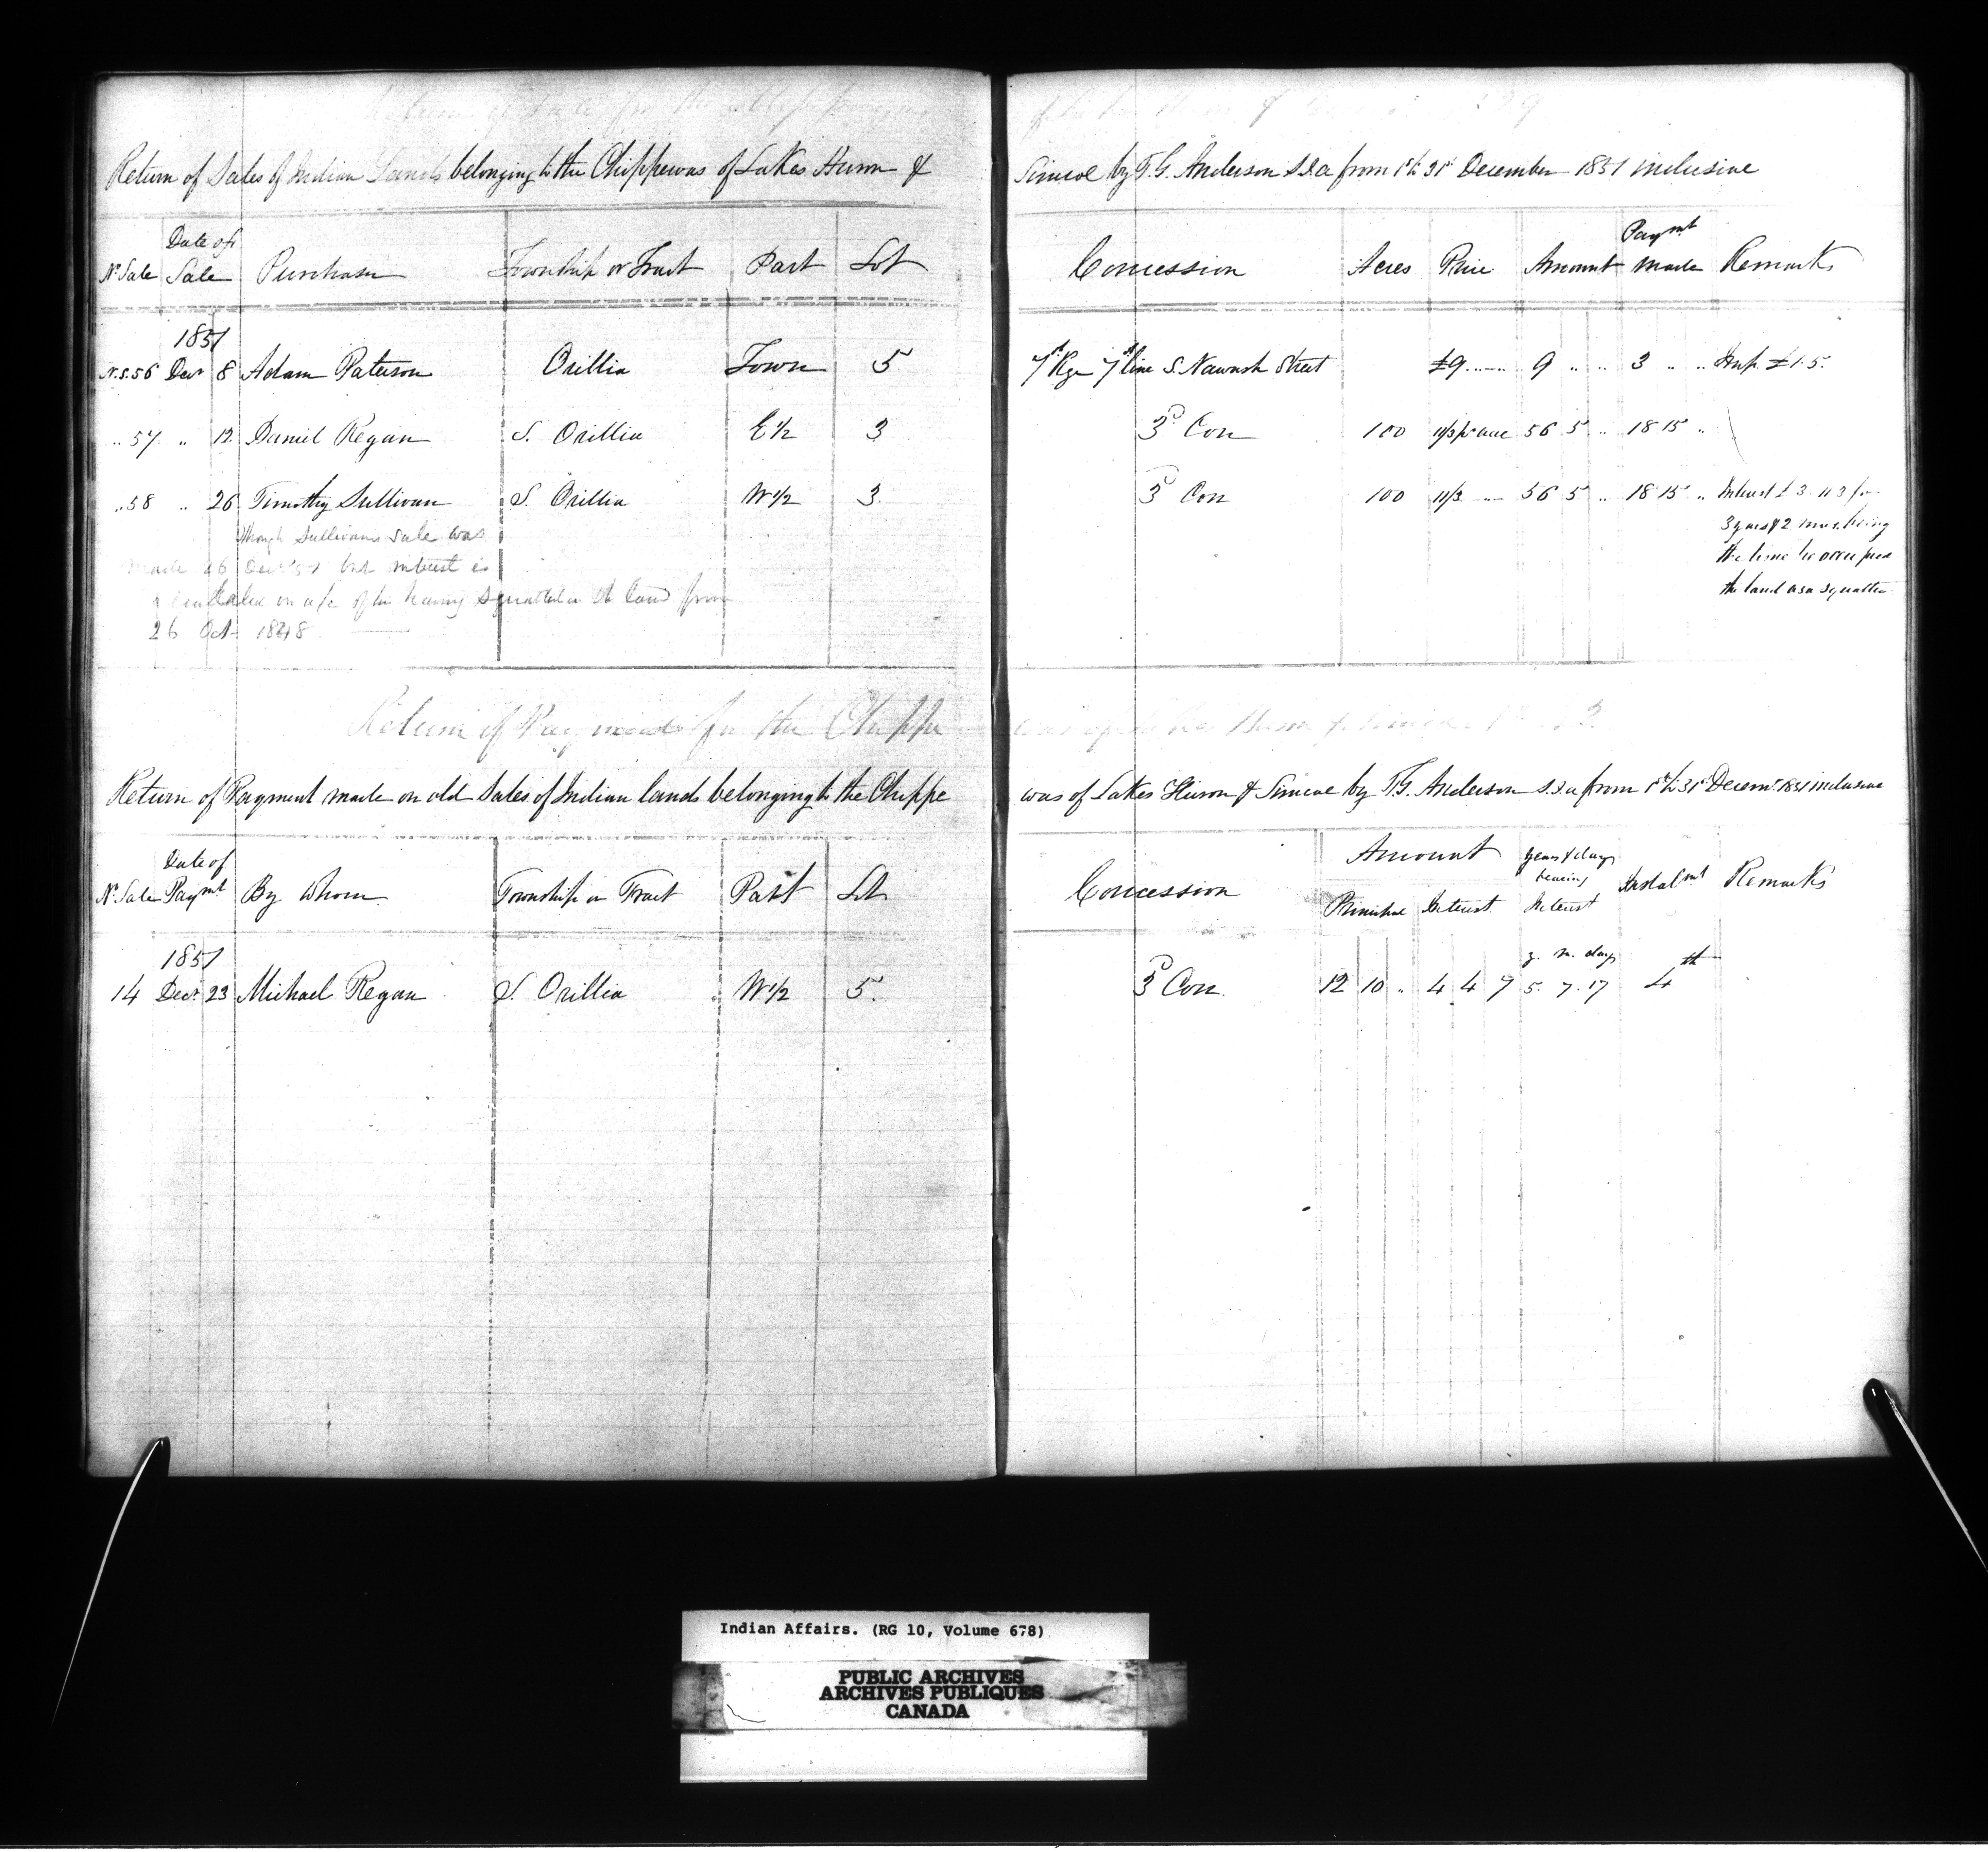 Return of Sales of Indian Lands belonging to the Chippewas of Lakes Huron &
Simcoe by T.G. Anderson S.I.a from 1st to 31st December 1851 inclusive
No Sale | Date of Sale | Purchaser | Township or Tract | Part | Lot | Concession | Acres | Price | Amount | Paymt made | Remarks
1851
N.S. 56 Decr 8 Adam Paterson Orillia Town 5 Rge line S. Nawash Street £9 .. 9 .. .. 3 .. .. Inst. £1.5.
.. 57 .. 12 Daniel Regan S. Orillia E 1/2 3 3d Con 100 11/3 pr acre 56 5 .. 18 15 ..
.. 58 .. 26 Timothy Sullivan S. Orillia W 1/2 3 3d Con 100 11/3 .. 56 5 .. 18 15 .. Interest £3. 11 3 for
3 years & 2 mos. being
the time he occupied
the land as a squatter
though Sullivans sale was
made 26 Decr 51 but interest is
calculated on a/c of his having squatted on the land from
26 Oct 1848
Return of Payments for the Chippe
Return of Payment made on old Sales of Indian lands belonging to the Chippe
was of Lakes Huron & Simcoe by T.G. Anderson S.I.a from 1st to 31st Decemr. 1851 inclusive
No Sale | Date of Paymt | By Whom | Township or Tract | Part | Lot | Concession | Amount Principal Interest | years & days bearing Interest | Instalmt | Remarks
1851 y. m. days
14 Decr. 23 Michael Regan S. Orillia W 1/2 5. 3d Con. 12 10 .. 4 4 7 5. 7. 17 4th
Indian Affairs. (RG 10, Volume 678)
PUBLIC ARCHIVES
ARCHIVES PUBLIQUES
CANADA